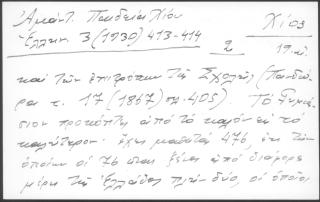 Ἀμάντ. Παιδεία Χίου Χίος
Ἑλλην. 3 (1930) 413-414 2 19.αἰ.
καὶ τῶν ἐπιτρόπων τῆς Σχολῆς (Πανδώ-
ρα τ. 17 (1867) σελ. 405) Τὸ Γυμνά-
σιον προκόπτει ἀπὸ τὸ καλὸν εἰς τὸ
καλύτερον· ἔχει μαθητὰς 476, ἐκ τῶν
ὁποίων οἱ 76 εἶναι ξένοι ἀπὸ διάφορα
μέρη τῆς Ἑλλάδος πλὴν δύο, οἱ ὁποῖοι